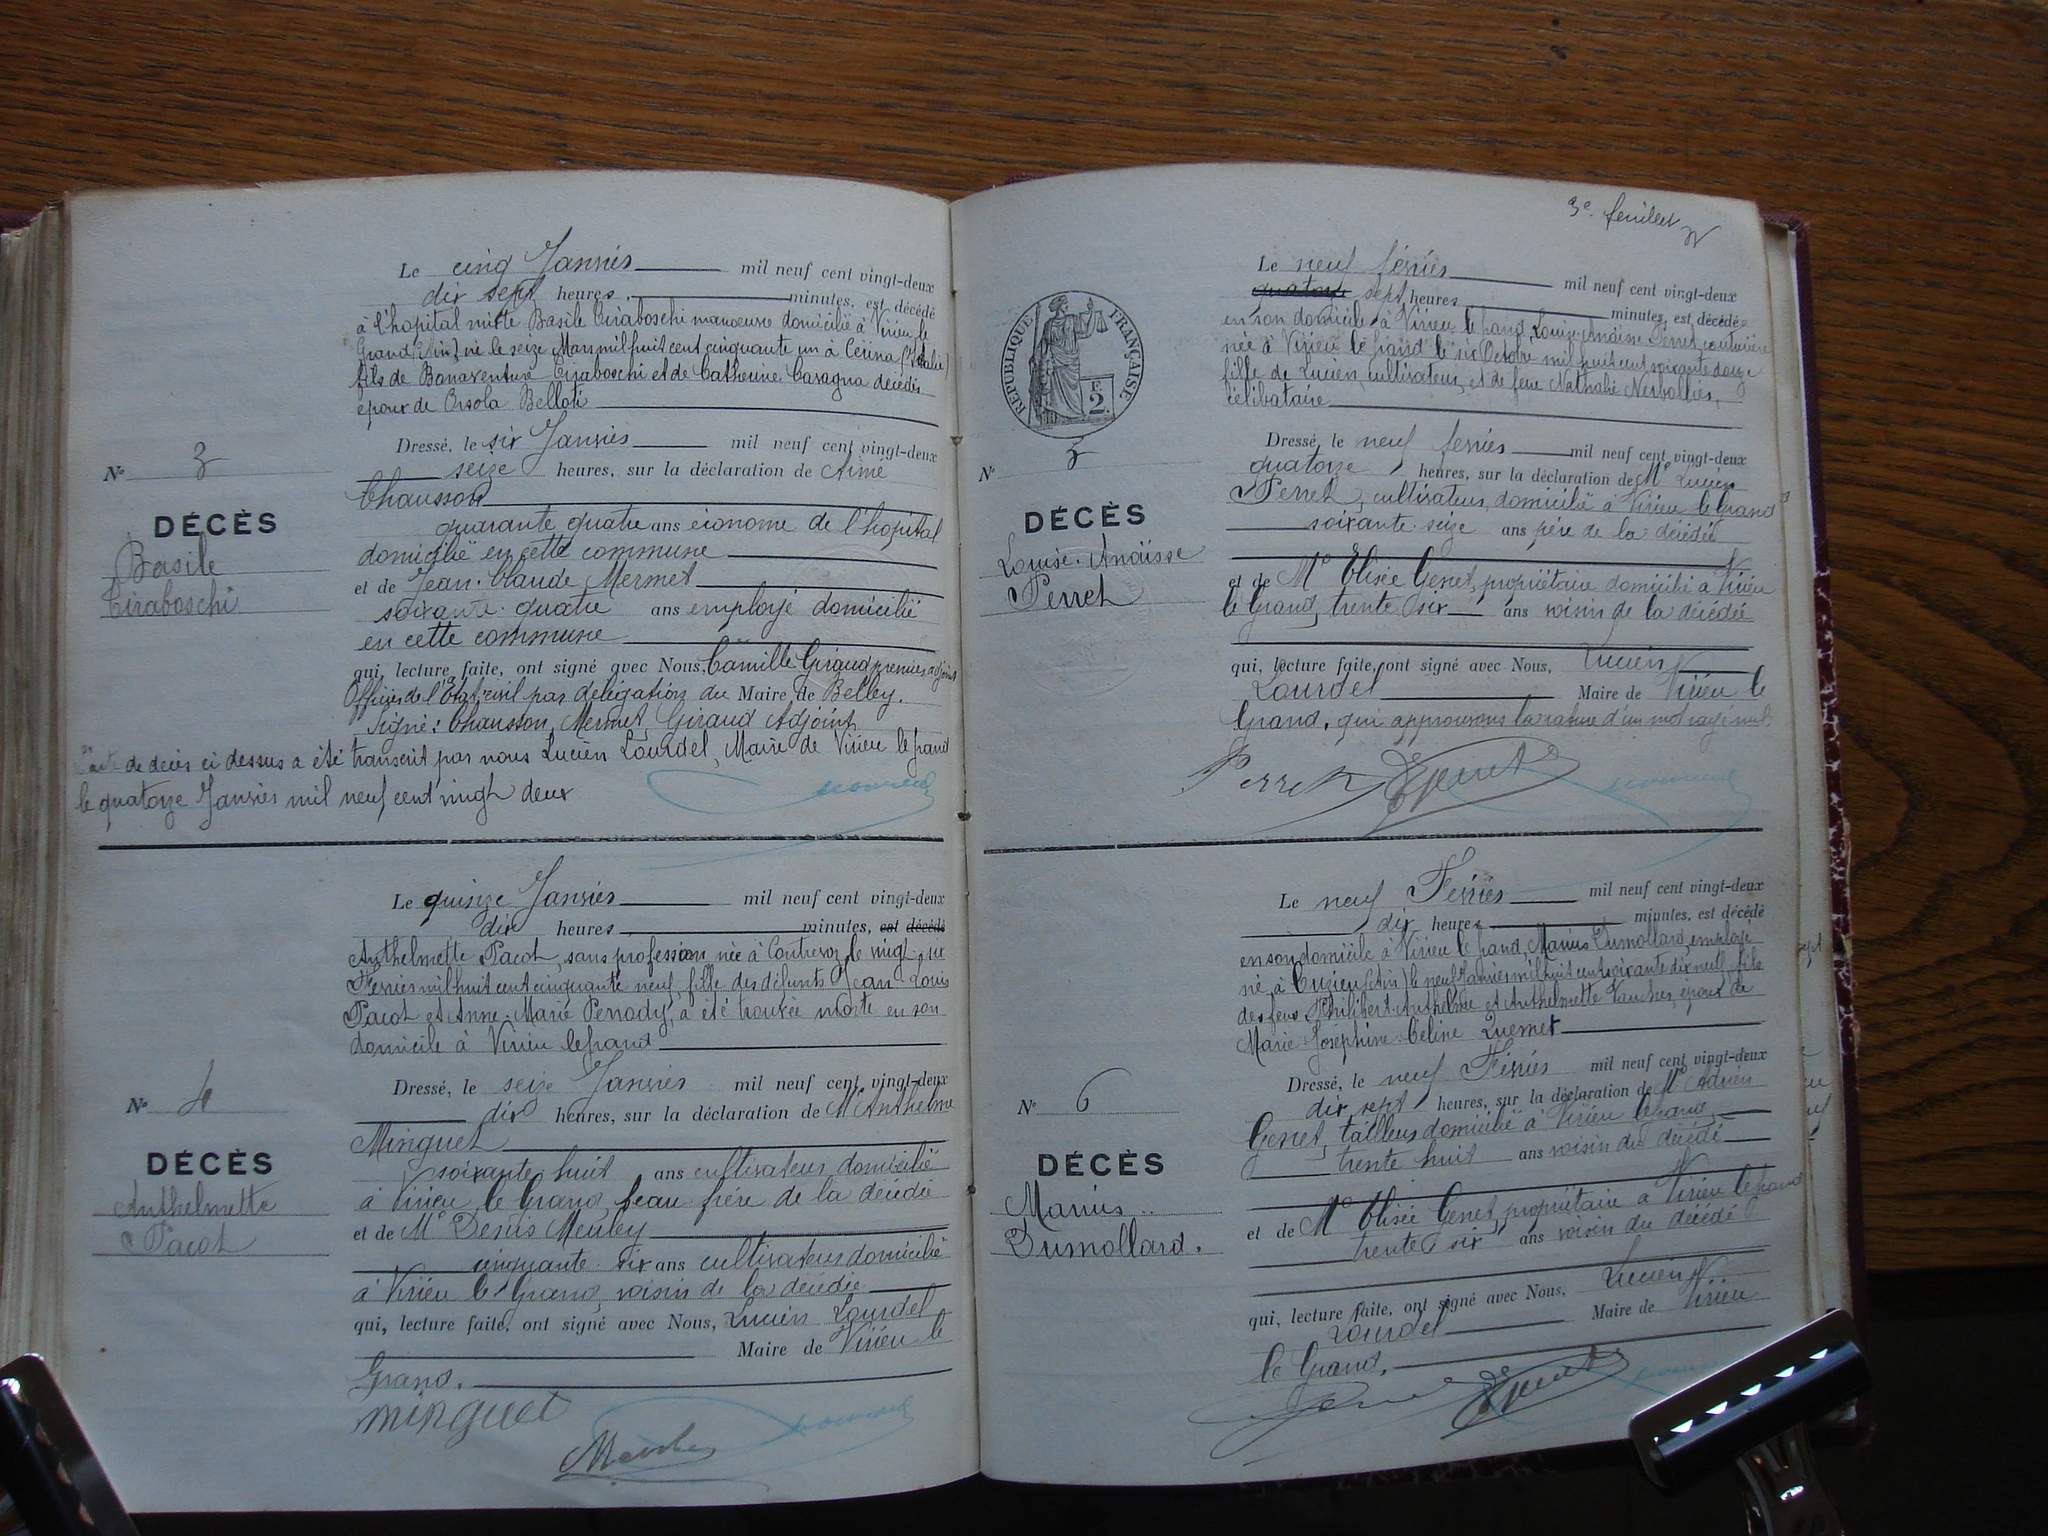 Le cinq Janvier mil neuf cent vingt-deux
dix sept heures, minutes, est décédé
à l'hopital mixte Basile Tiraboschi manœuvre domicilié à Virieu le
Grand (Ain) né le seize Mars mil huit cent cinquante un à (Italie)
fils de Bonaventure Tiraboschi et de Catherine Cavagna décédés
époux de Orsola Belloti
Dressé, le six Janvier mil neuf cent vingt-deux
seize heures, sur la déclaration de Aimé
Chausson
quarante quatre ans économe de l'hopital
domicilié en cette commune
et de Jean-Claude Mermet
soixante-quatre ans employé domicilié
en cette commune
qui, lecture faite, ont signé avec Nous, Camille Giraud premier adjoint
Officier de l'Etat civil par délégation du Maire de Belley.
Signé: Chausson, Mermet, Giraud Adjoint
de décès ci dessus a été transcrit par nous Lucien Lourdel, Maire de Virieu le grand
le quatorze Janvier mil neuf cent vingt deux
N° 3
DÉCÈS
Basile
Tiraboschi
Le quinze Janvier mil neuf cent vingt-deux
dix heures minutes, est décédé
Anthelmette Pacot, sans profession née à Contrevoz le vingt six
Février mil huit cent cinquante neuf, fille des défunts Jean-Louis
Pacot et Anne-Marie Perrody, a été trouvée morte en son
domicile à Virieu legrand
Dressé, le seize Janvier mil neuf cent vingt-deux
dix heures, sur la déclaration de Mr Anthelme
Minguet
soixante huit ans cultivateur domicilié
à Virieu le Grand, beau-frère de la décédée
et de Mr Denis Meuley
cinquante-six ans cultivateur domicilié
à Virieu le Grand, voisin de la décédée
qui, lecture faite, ont signé avec Nous, Lucien Lourdel
Maire de Virieu le
Grand.
minguet
N° 4
DÉCÈS
Anthelmette
Pacot
3e feuillet
Le neuf février mil neuf cent vingt-deux
quatorze sept heures minutes, est décédée
en son domicile à Virieu le grand, Louise-Anaïsse Perret couturière
née à Virieu le grand le six Octobre mil huit cent soixante douze
fille de Lucien, cultivateur, et de feue Nathalie
célibataire
Dressé, le neuf fevrier mil neuf cent vingt-deux
quatorze heures, sur la déclaration de Mr Lucien
Perret, cultivateur, domicilié à Virieu le Grand
soixante-seize ans père de la décédée
et de Mr Elisée Genet, propriétaire domicilié à Virieu
le Grand, trente six ans voisin de la décédée
qui, lecture faite, ont signé avec Nous, Lucien
Lourdel Maire de Virieu le
Grand, qui approuvons la rature d'un mot rayé nul.
Perret
RÉPUBLIQUE FRANÇAISE
2 F.
N°
DÉCÈS
Louise-Anaïsse
Perret
Le neuf Février mil neuf cent vingt-deux
dix heures minutes, est décédé
en son domicile à Virieu le grand, Marius Dumollard, employé
né à Cuzieu (Ain) le neuf Janvier mil huit cent soixante dix neuf, fils
des feus Philibert-Anthelme et Anthelmette Vaucher, époux de
Marie-Joséphine-Céline Quemet
Dressé, le neuf Février mil neuf cent vingt-deux
dix sept heures, sur la déclaration de Mr Adrien
Genet, tailleur domicilié à Virieu legrand,
trente huit ans voisin du décédé
et de Mr Elisée Genet, propriétaire à Virieu legrand
trente six ans voisin du décédé
qui, lecture faite, ont signé avec Nous, Lucien
Lourdel Maire de Virieu
le Grand.
N° 6
DÉCÈS
Marius
Dumollard.